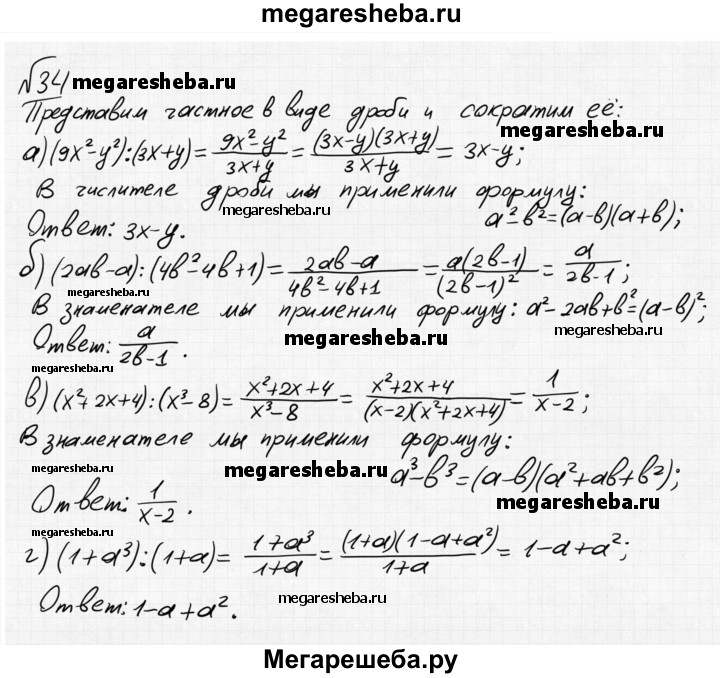 megaresheba.ru
№34 megaresheba.ru
Представим частное в виде дроби и сократим её:
megaresheba.ru
а) (9x²-y²):(3x+y)= (9x²-y²)/(3x+y) = (3x-y)(3x+y)/(3x+y) = 3x-y;
В числителе дроби мы применили формулу:
megaresheba.ru
a²-b²=(a-b)(a+b);
Ответ: 3x-y.
б) (2ab-a):(4b²-4b+1)= (2ab-a)/(4b²-4b+1) = a(2b-1)/(2b-1)² = a/(2b-1);
megaresheba.ru
В знаменателе мы применили формулу: a²-2ab+b²=(a-b)²;
megaresheba.ru
megaresheba.ru
Ответ: a/(2b-1).
в) (x²+2x+4):(x³-8)= (x²+2x+4)/(x³-8) = (x²+2x+4)/((x-2)(x²+2x+4)) = 1/(x-2);
В знаменателе мы применили формулу:
megaresheba.ru megaresheba.ru
a³-b³=(a-b)(a²+ab+b²);
megaresheba.ru
Ответ: 1/(x-2).
megaresheba.ru
г) (1+a³):(1+a)= (1+a³)/(1+a) = (1+a)(1-a+a²)/(1+a) = 1-a+a²;
megaresheba.ru
Ответ: 1-a+a².
Мегарешеба.ру